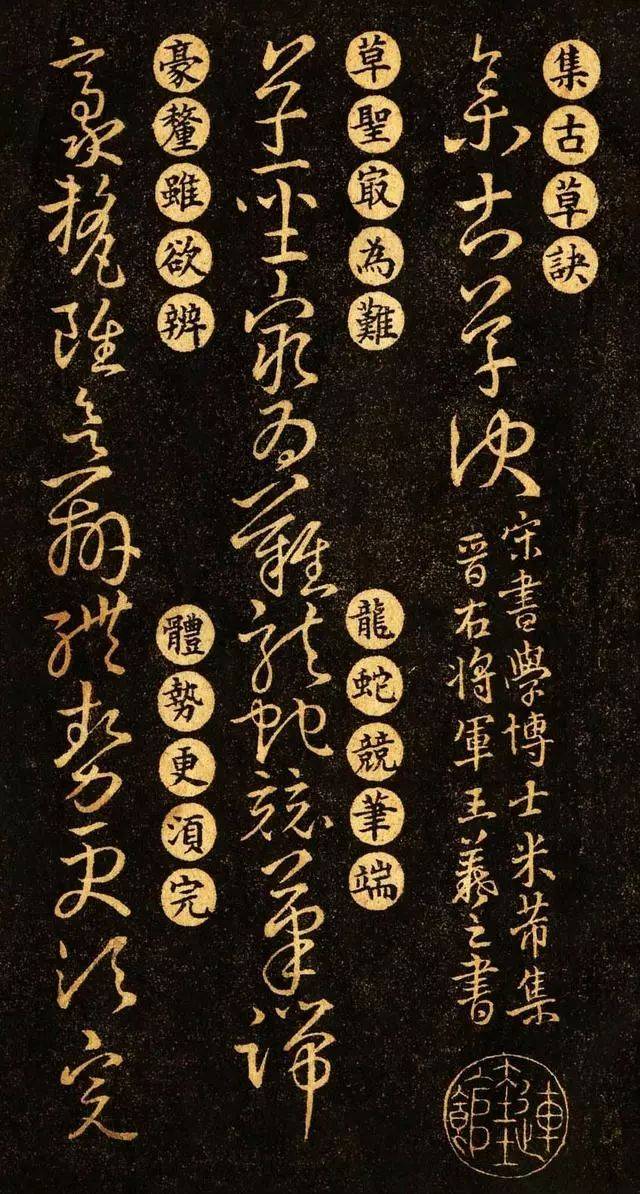 集古草訣
集古草訣
宋書學博士米芾集
晉右將軍王羲之書
草聖㝡為難
龍蛇競筆端
草聖㝡為難龍蛇競筆端
豪釐雖欲辨
體勢更湏完
豪釐雖欲辨體勢更湏完